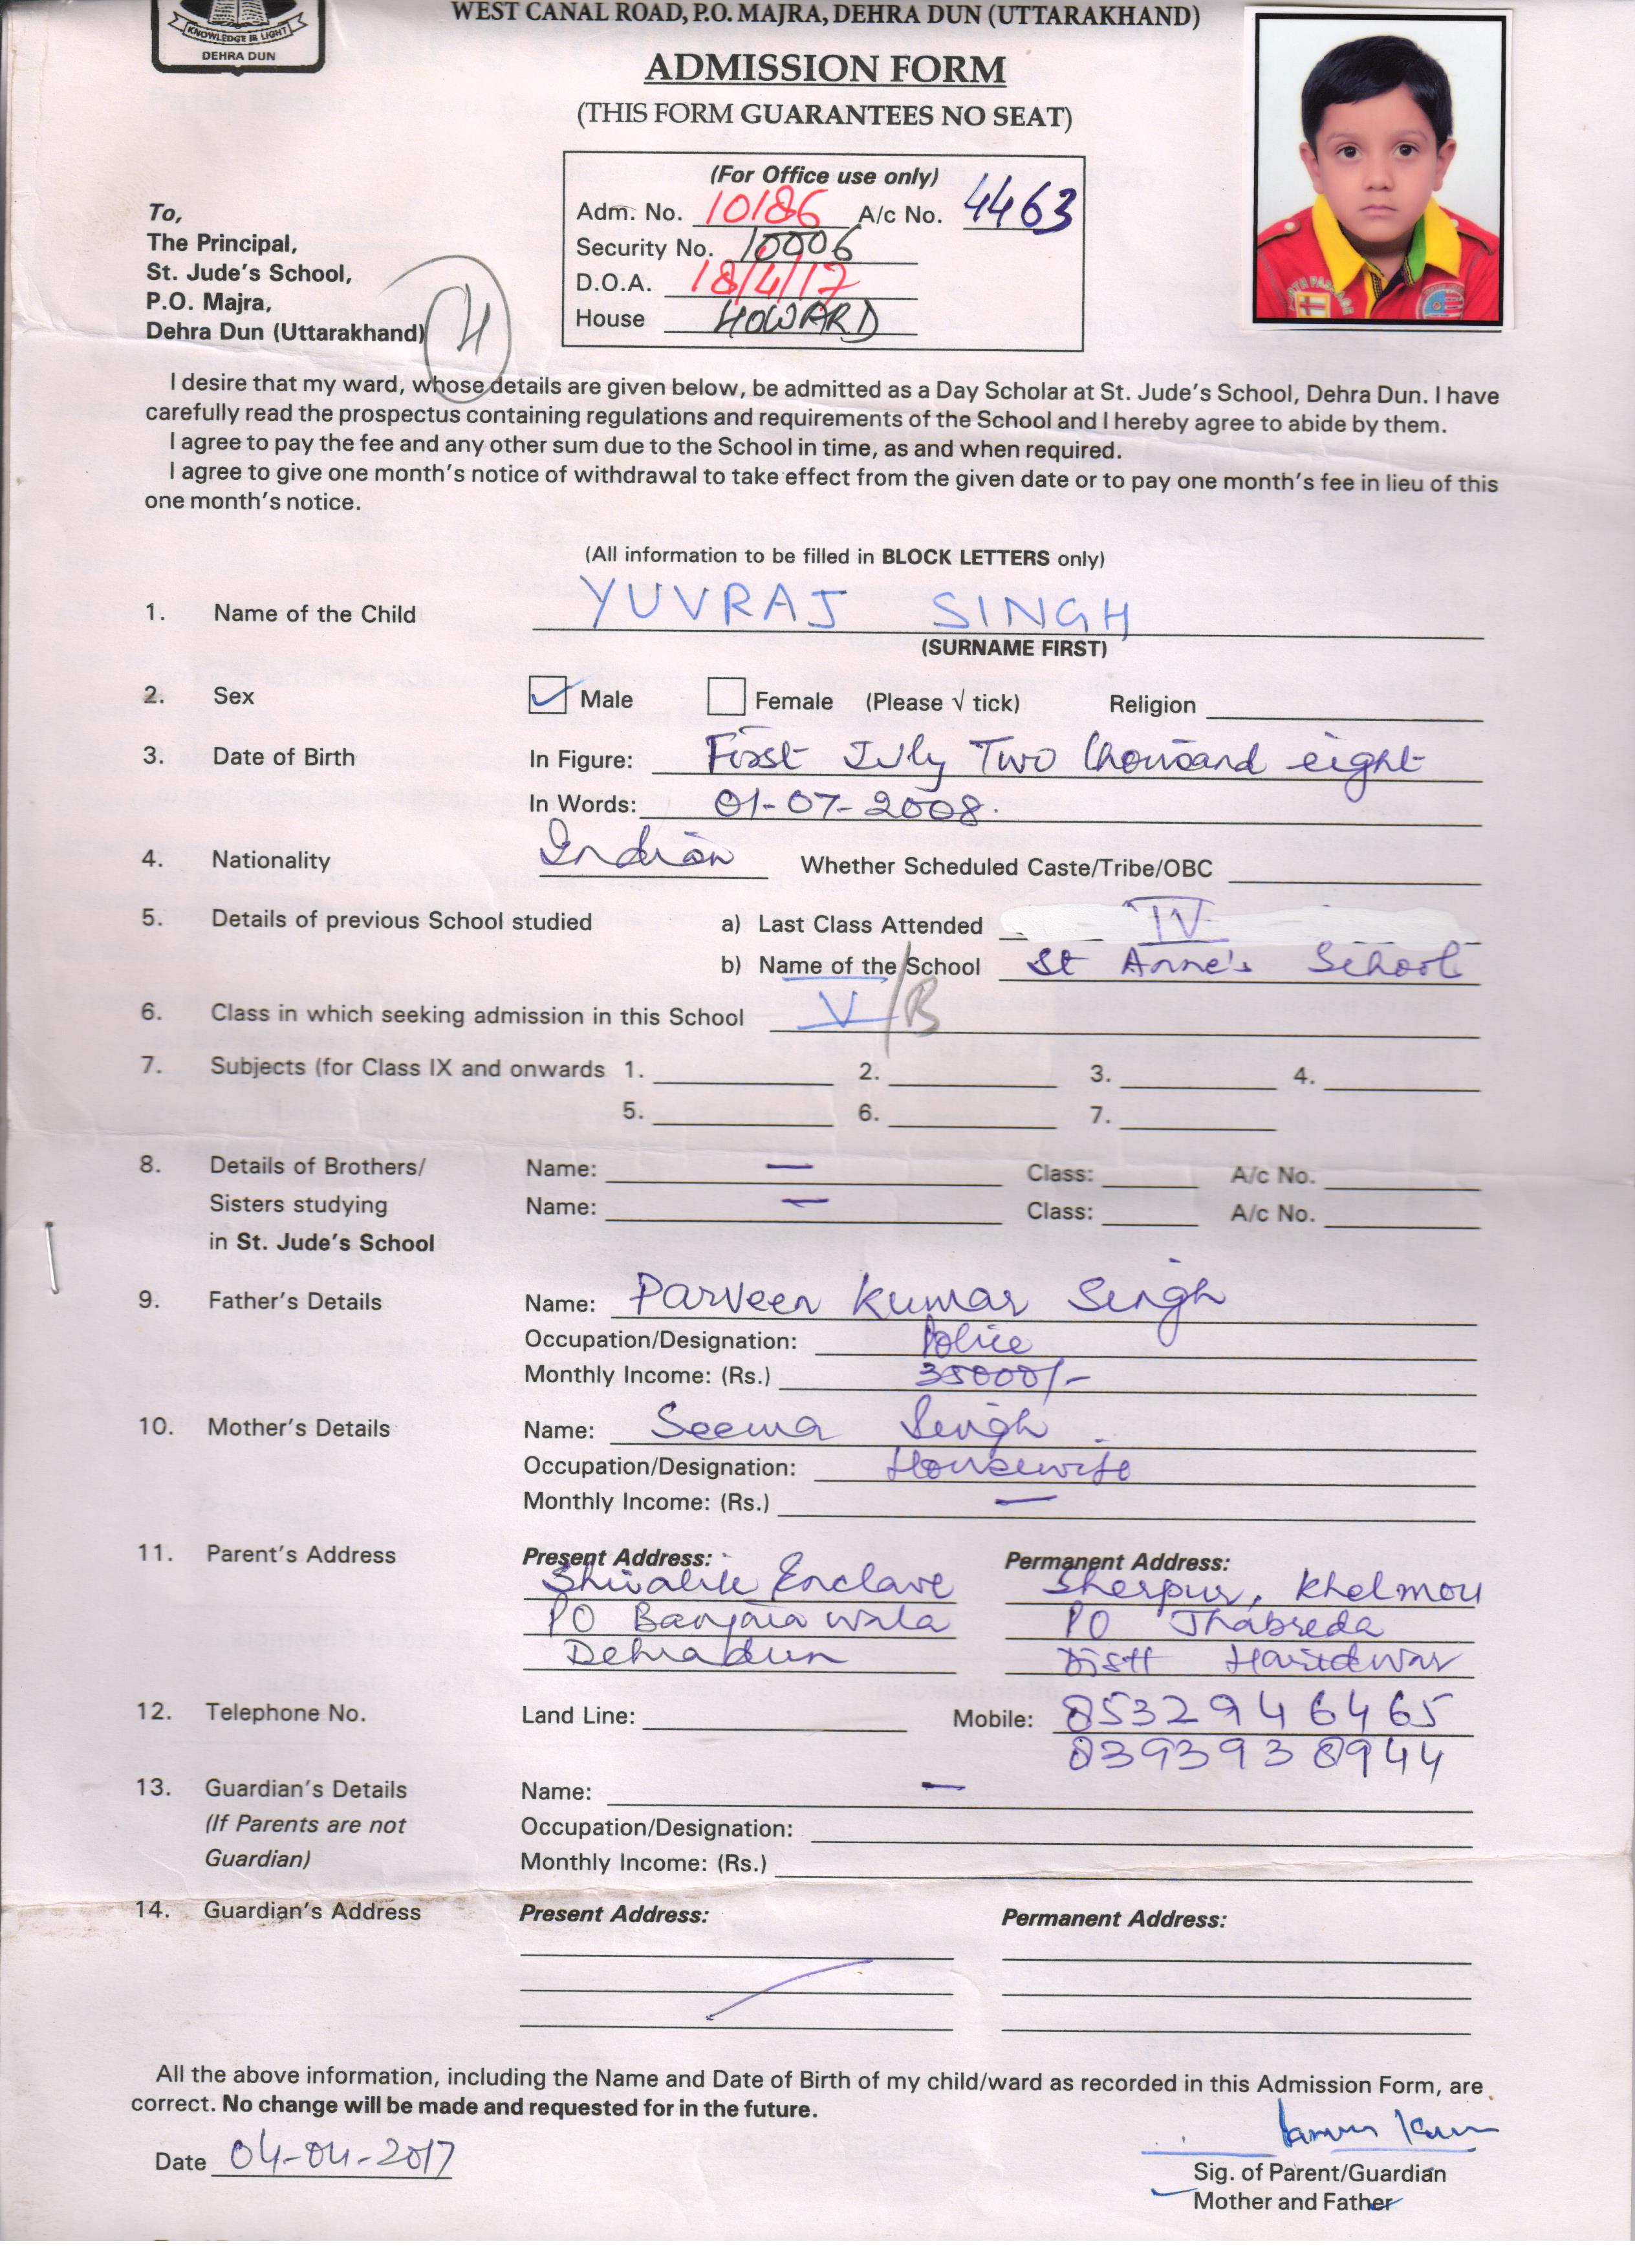 WEST CANAL ROAD, P.O. MAJRA, DEHRA DUN (UTTARAKHAND)
KNOWLEDGE IS LIGHT
DEHRA DUN
ADMISSION FORM
(THIS FORM GUARANTEES NO SEAT)
(For Office use only)
Adm. No. 10186 A/c No. 4463
Security No. 10006
D.O.A. 18/4/17
House HOWARD
To,
The Principal,
St. Jude's School,
P.O. Majra,
Dehra Dun (Uttarakhand)
4
I desire that my ward, whose details are given below, be admitted as a Day Scholar at St. Jude's School, Dehra Dun. I have
carefully read the prospectus containing regulations and requirements of the School and I hereby agree to abide by them.
I agree to pay the fee and any other sum due to the School in time, as and when required.
I agree to give one month's notice of withdrawal to take effect from the given date or to pay one month's fee in lieu of this
one month's notice.
(All information to be filled in BLOCK LETTERS only)
1. Name of the Child YUVRAJ SINGH
(SURNAME FIRST)
2. Sex Male Female (Please √ tick) Religion
3. Date of Birth In Figure: First July Two thousand eight
In Words: 01-07-2008.
4. Nationality Indian Whether Scheduled Caste/Tribe/OBC
5. Details of previous School studied a) Last Class Attended IV
b) Name of the School St Anne's School
6. Class in which seeking admission in this School V/B
7. Subjects (for Class IX and onwards 1. 2. 3. 4.
5. 6. 7.
8. Details of Brothers/ Name: — Class: A/c No.
Sisters studying Name: — Class: A/c No.
in St. Jude's School
9. Father's Details Name: Parveen Kumar Singh
Occupation/Designation: Police
Monthly Income: (Rs.) 35000/-
10. Mother's Details Name: Seema Singh
Occupation/Designation: Housewife
Monthly Income: (Rs.) —
11. Parent's Address Present Address: Permanent Address:
Shivalik Enclave Sherpur, Khelmou
PO Banjara wala PO Jhabreda
Dehradun Distt Haridwar
12. Telephone No. Land Line: Mobile: 8532946465
8393938944
13. Guardian's Details Name: —
(If Parents are not Occupation/Designation:
Guardian) Monthly Income: (Rs.)
14. Guardian's Address Present Address: Permanent Address:
All the above information, including the Name and Date of Birth of my child/ward as recorded in this Admission Form, are
correct. No change will be made and requested for in the future.
Date 04-04-2017
Sig. of Parent/Guardian
Mother and Father